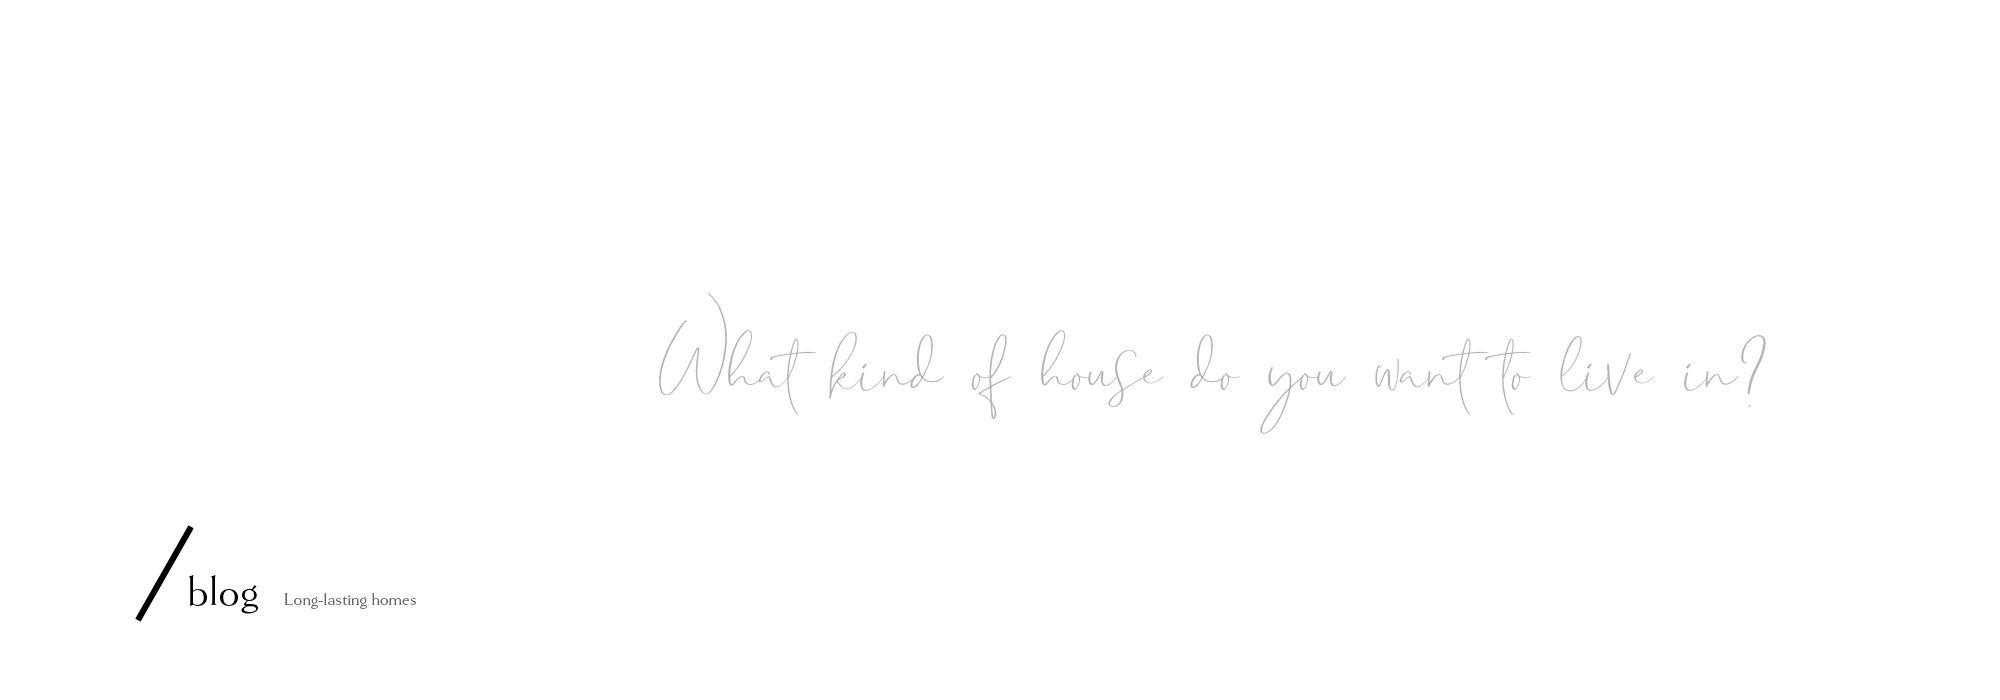 What kind of house do you want to live in?
blog Long-lasting homes